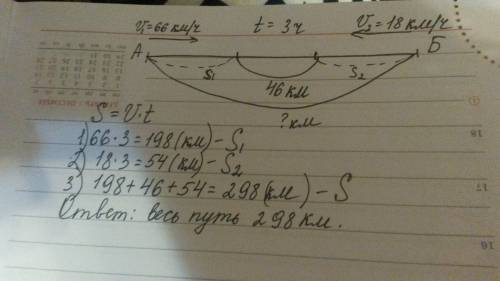 V₁=66 км/ч t = 3ч V₂=18 км/ч
А Б
S₁ S₂
46 км
? км
S=V·t
1) 66·3=198(км)-S₁
2) 18·3=54(км)-S₂
3) 198+46+54=298(км)-S
Ответ: весь путь 298 км.
18
17
16